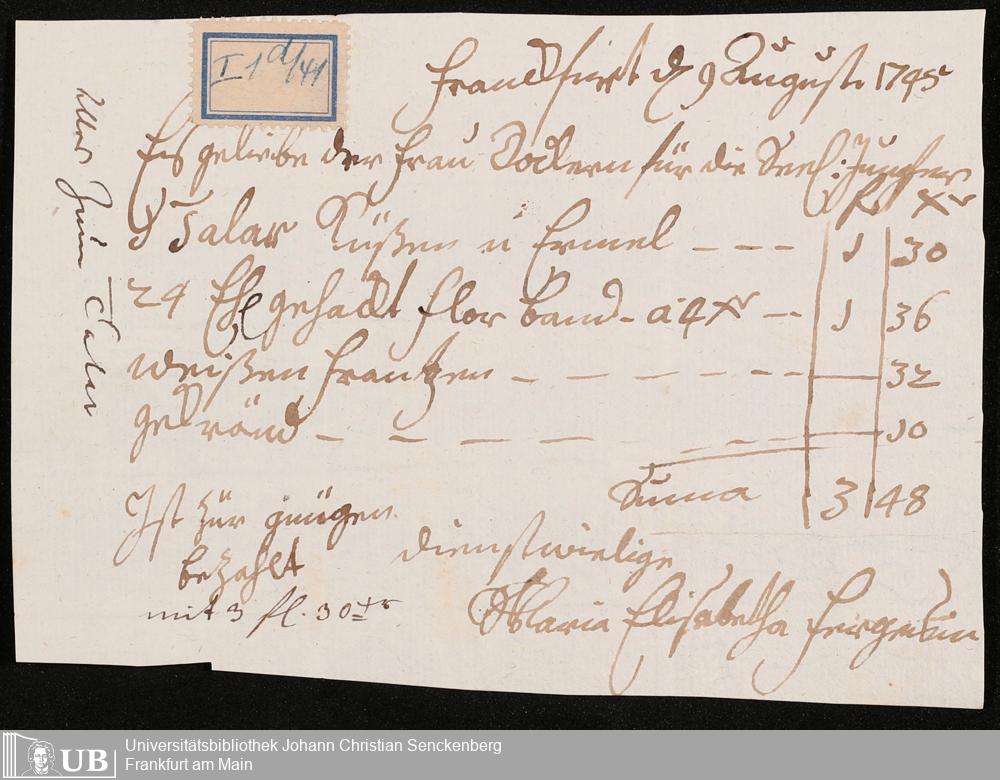 I 1 d/41
Franckfurt d 9 August 1745
Es geliebe der Frau Dockern für die Seel: Jungfer
fl xr
1 Talar Küßen u Ermel - - - 1 30
24 Ehl gehackt flor band - a 4 xr - - 1 36
weißen Frantzen - - - - - - 32
gekrönd - - - - - - - 10
Suma 3 48
Ist zur gnügen
bezahlt
mit 3 fl. 30 xr
dienstwielige
Maria Elisabetha
UB
Universitätsbibliothek Johann Christian Senckenberg
Frankfurt am Main